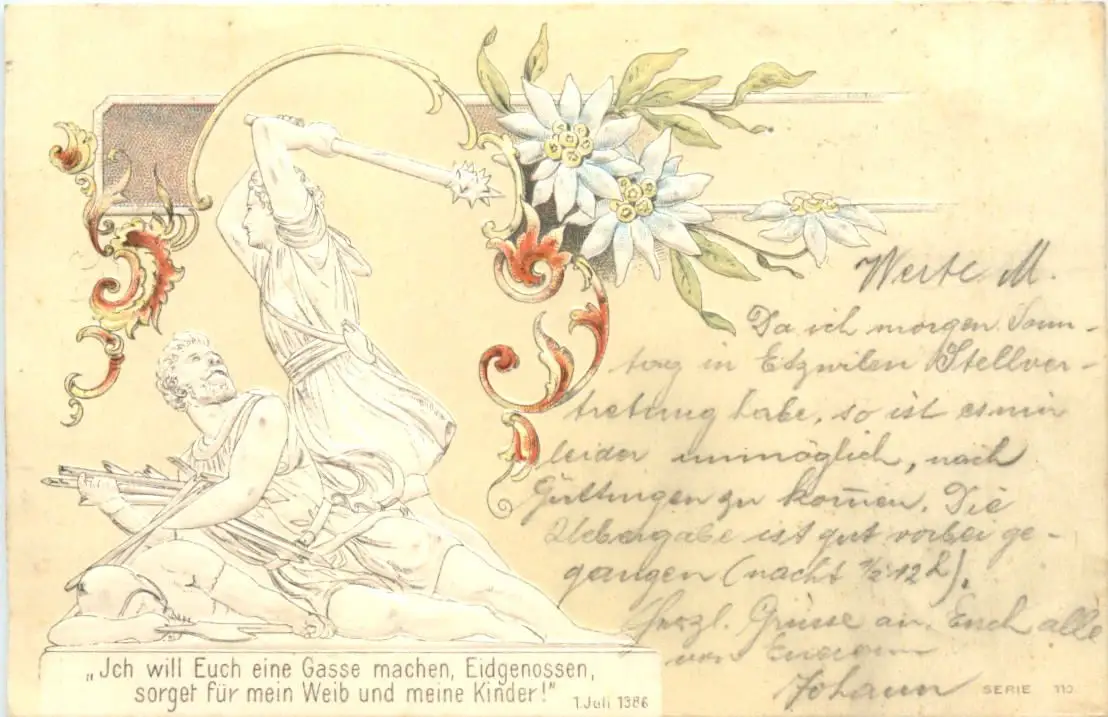 Werte M.
Da ich morgen Sonn-
tag in Etzwilen Stellver-
tretung habe, so ist es mir
leider unmöglich, nach
Güttingen zu kom̅en. Die
Uebergabe ist gut vorbei ge-
gangen (nacht ½ 12 h).
Herzl. Grüsse an Euch alle
von Eurem
Johann
„Ich will Euch eine Gasse machen, Eidgenossen,
sorget für mein Weib und meine Kinder!"
1. Juli 1386
SERIE 110